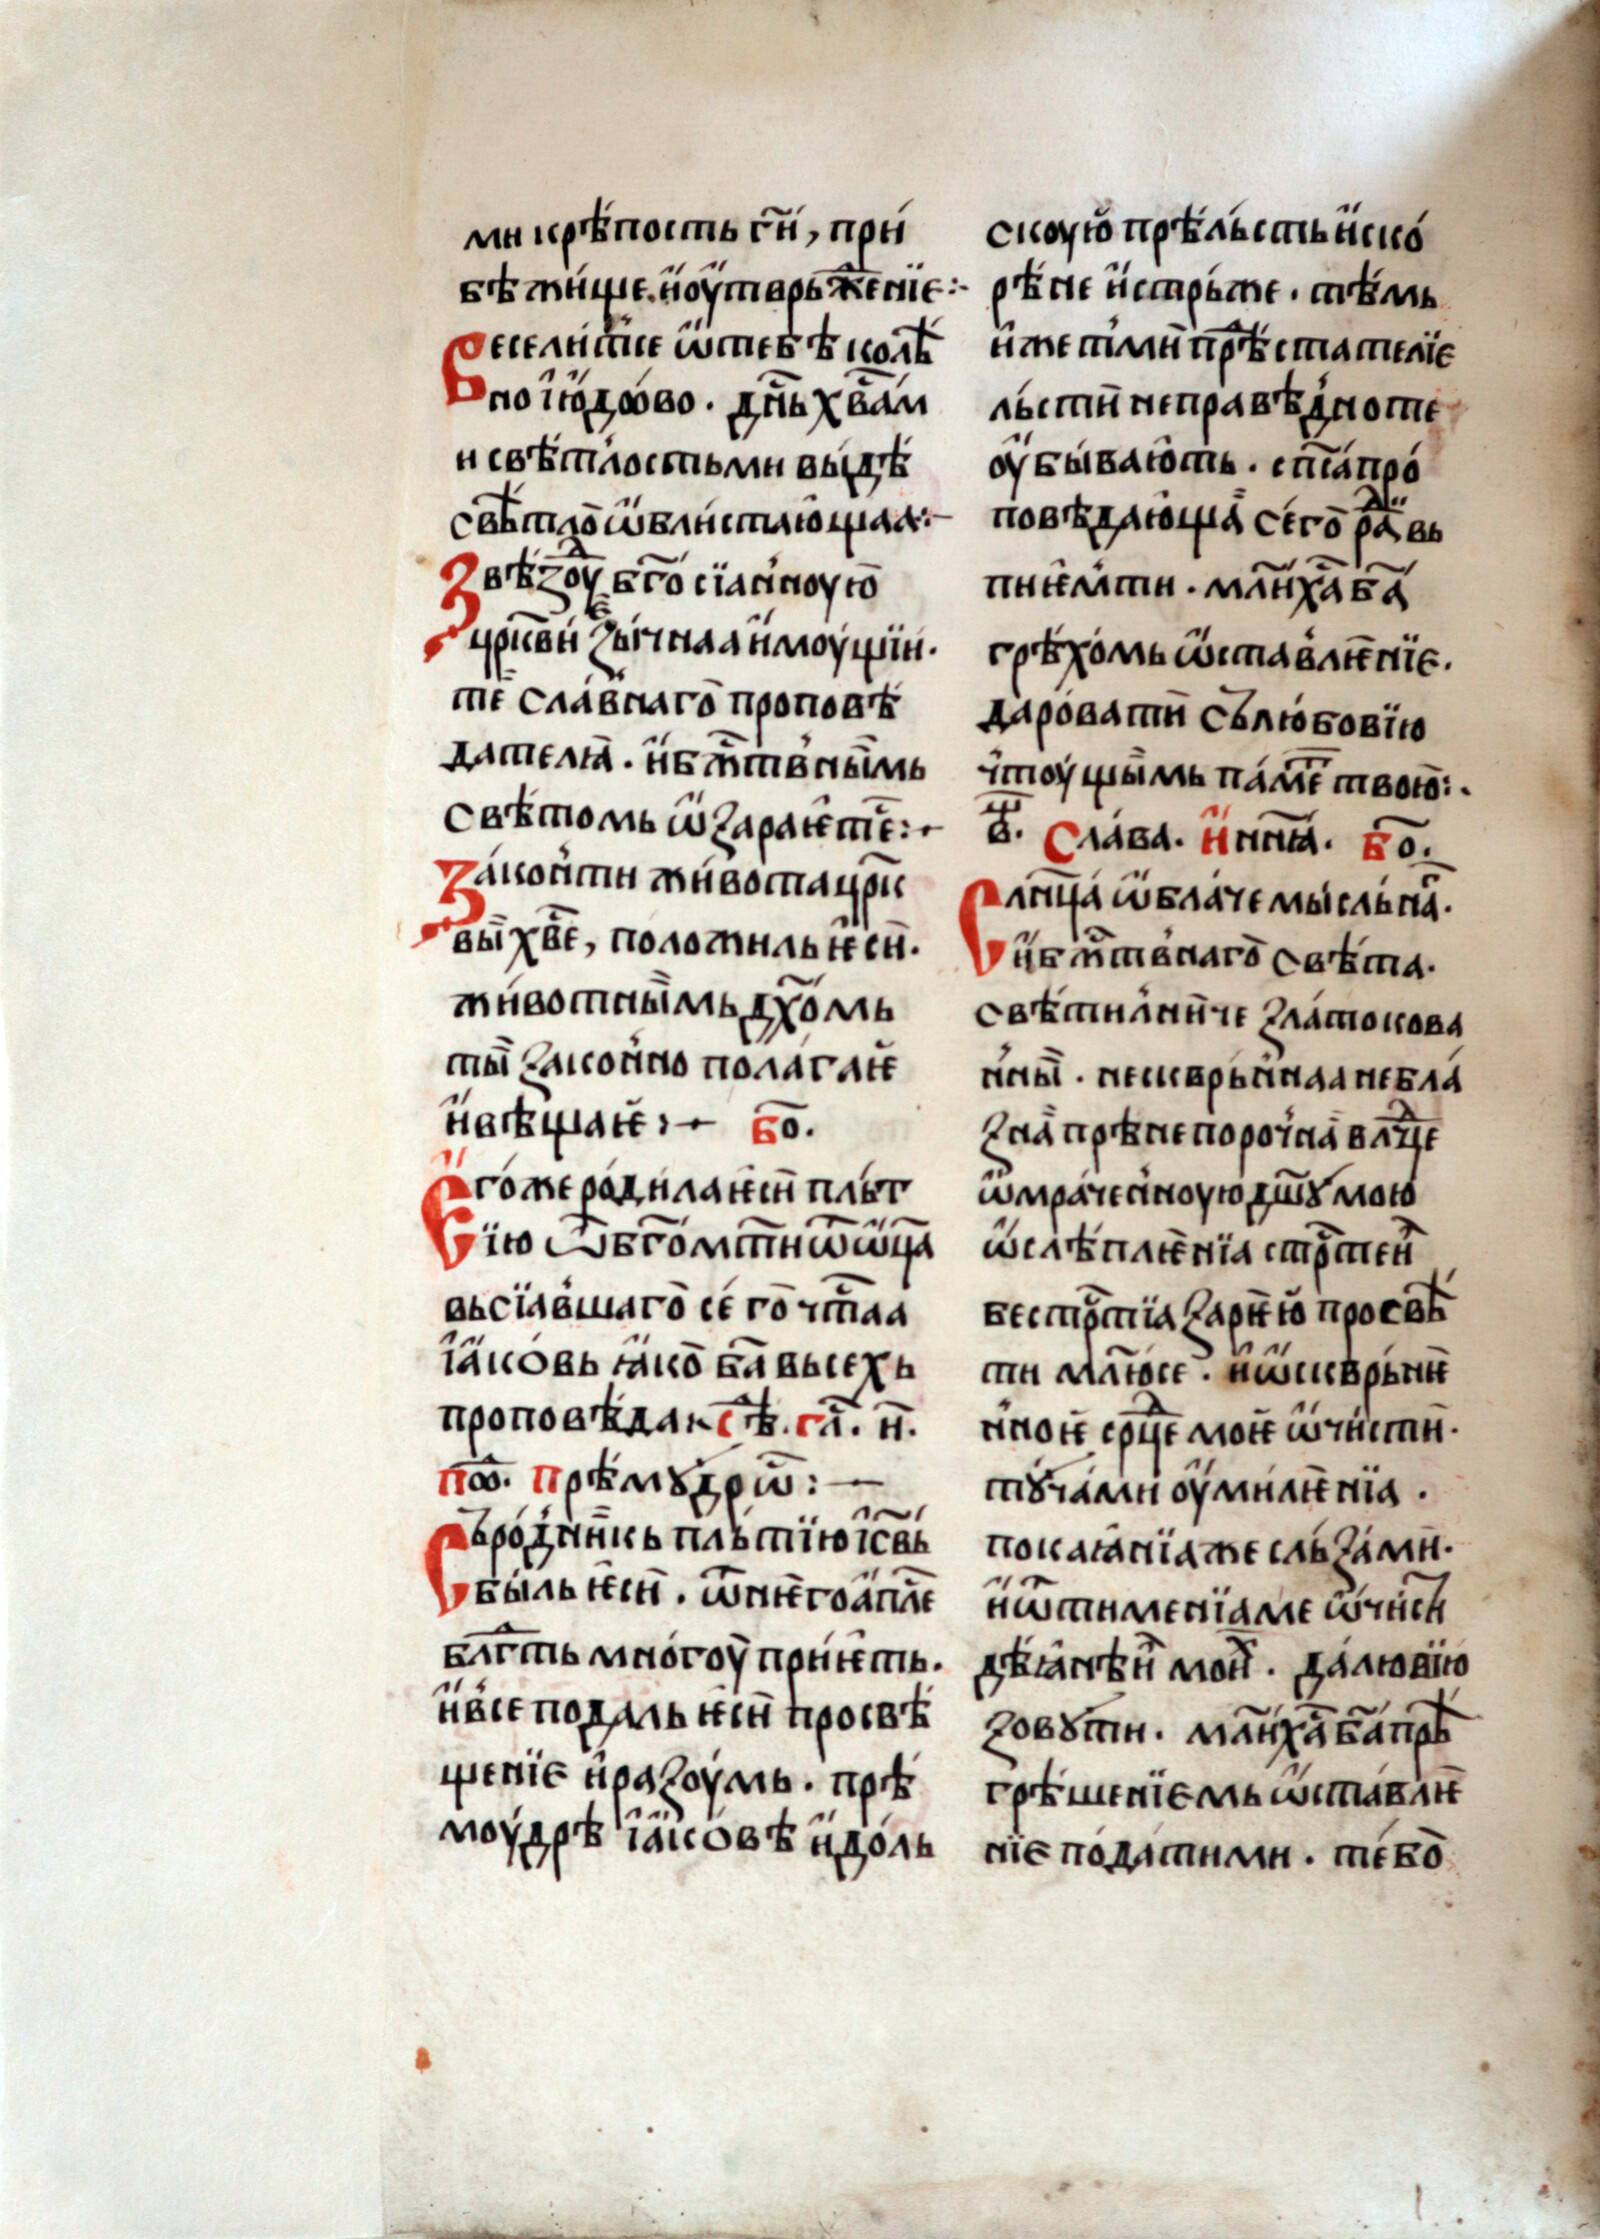 ми крѣпость гⷭ҇и, при
бѣжище. и оутврьженїе :·
Веселитсе ѡ тебѣ колѣ
но їюдово. днⷭ҇ь хвалам
и свѣтлостьми выдѣ
свѣтло ѡблистающаа :·
Звѣздоу бг҃осїанноую
црк҃ви езычнаа имоущїи.
те славнаго проповѣ
дателꙗ. и бжⷭ҇твнымь
свѣтомь ѡзараѥтсе :·
Законти живота црк
вы хвⷭ҇е, положиль ѥси.
животнымь дх҃омь
ты законно полагаѥ
и вѣщаѥ :· Бо.
Егоже родила ѥси пльт
їю ѿ бг҃омт҃и ѿ ѡц҃а
вьсїавшаго сего чтⷭ҇аа
їаковь ꙗко ба҃ высехь
проповѣдак сѣⷣ. гл҃. и҃.
поⷣ. Прѣмꙋдрѡ : —
Сьродникь пльтїю їс҃вь
быль ѥси. ѿ нѥго апⷭ҇ле
блг҃ть многоу приѥть.
и все подаль ѥси просвѣ
щенїе и разоумь. прѣ
моудрѣ їаковѣ идоль
скоую прѣльсть и ско
рѣне истрьже. тѣмь
иже тми прѣстателїе
льсти неправѣдно те
оубывають. спⷭ҇а про
повѣдающа сего раⷣи вь
пиѥмти. мли ха҃ ба҃
грѣхомь ѡставлѥнїе.
даровати сьлюбовїю
чтоущымь паметⷮ твою :·
в҃. Слава. И нин҃ꙗ. Бо.
Слнц҃а ѡблаче мысльна.
и бжⷭ҇твнаго свѣта.
свѣтилниче златокова
нны. нескврьннаа небла
зна прѣнепорочна влⷣце
ѡмраченноую дш҃ꙋ мою
ѡслѣплѥнїа стрⷭ҇тей
бестрⷭ҇тїа зарѥю просвѣ
ти млюсе. и ѡскврьниѥ
нноѥ срⷣце моѥ ѡчисти.
тꙋчами оумилѥнїа.
покаꙗнїа же сльзами.
и ѿ тименїа ме ѡчисти
дѣꙗнѣи мои. да любвїю
зовꙋти. мли ха҃ ба҃ прѣ
грѣшенїемь ѡставлѥ
нїе подати ми. те бо